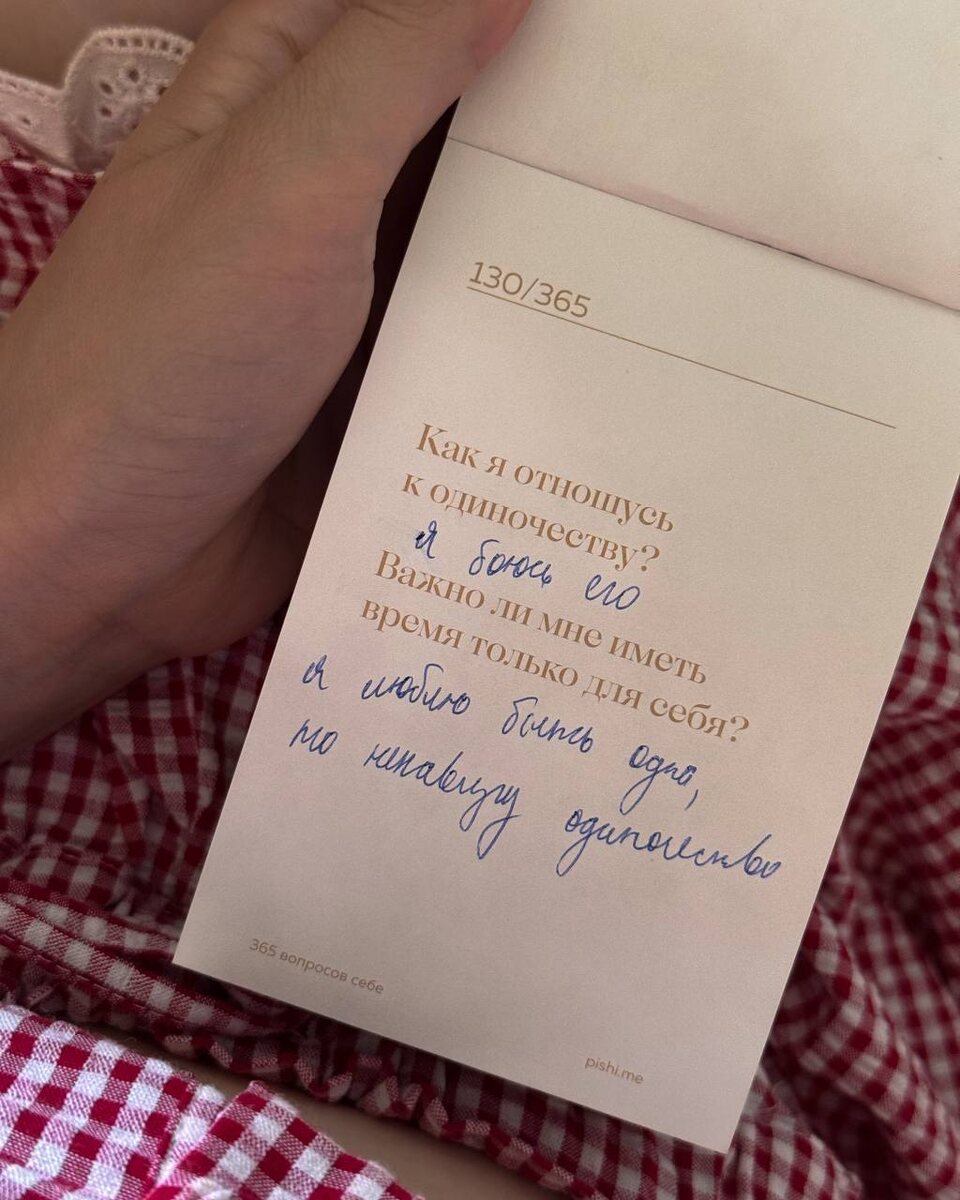 130/365
Как я отношусь
к одиночеству?
Я боюсь его
Важно ли мне иметь
время только для себя?
я люблю быть одна,
но ненавижу одиночество
365 вопросов себе
pishi.me